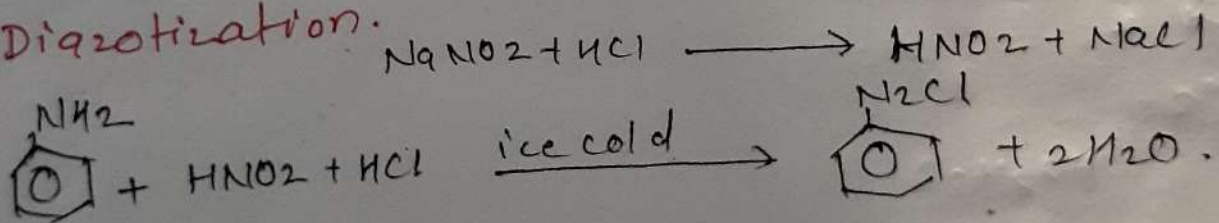 Diazotization.
NaNO2 + HCl ⟶ HNO2 + NaCl
NH2 N2Cl
+ HNO2 + HCl ice cold ⟶ + 2H2O.